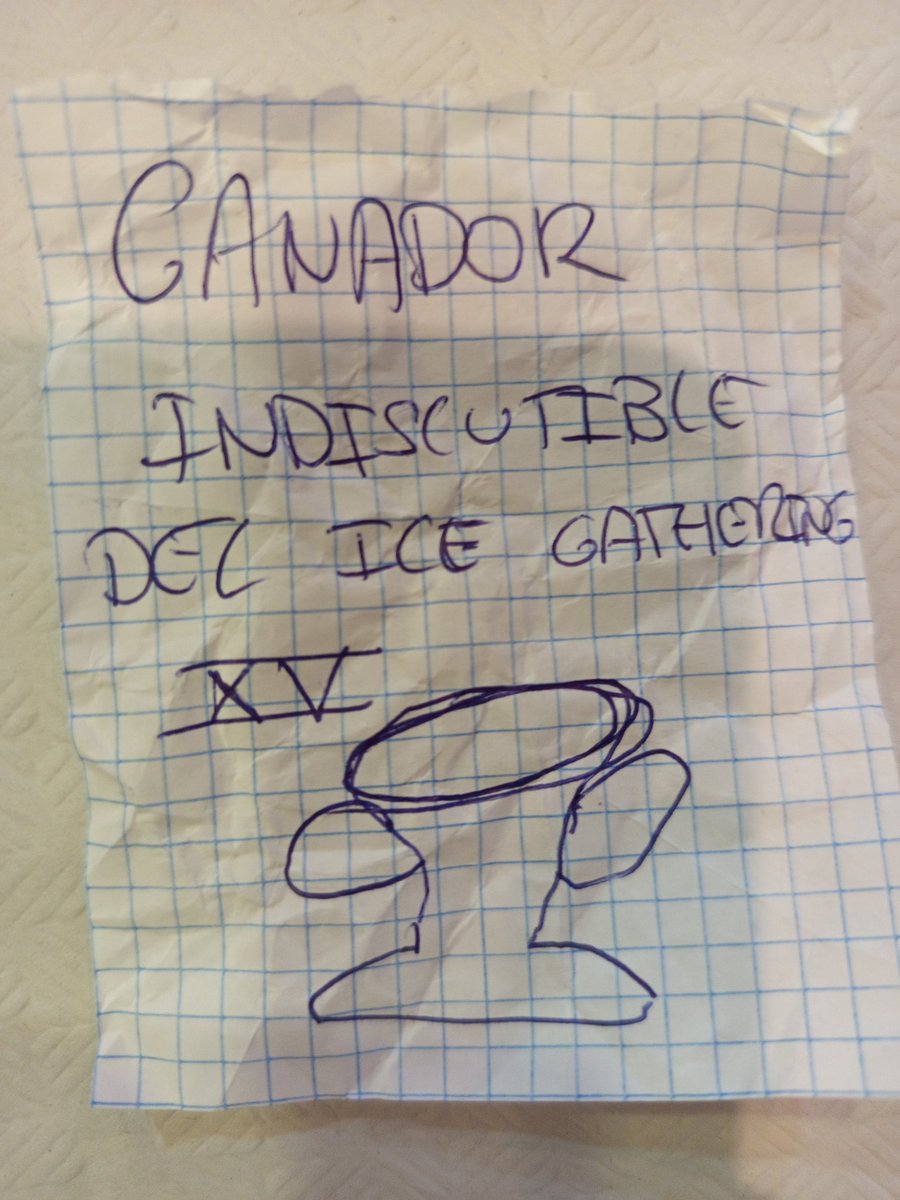 GANADOR
INDISCUTIBLE
DEL ICE GATHERING
XV